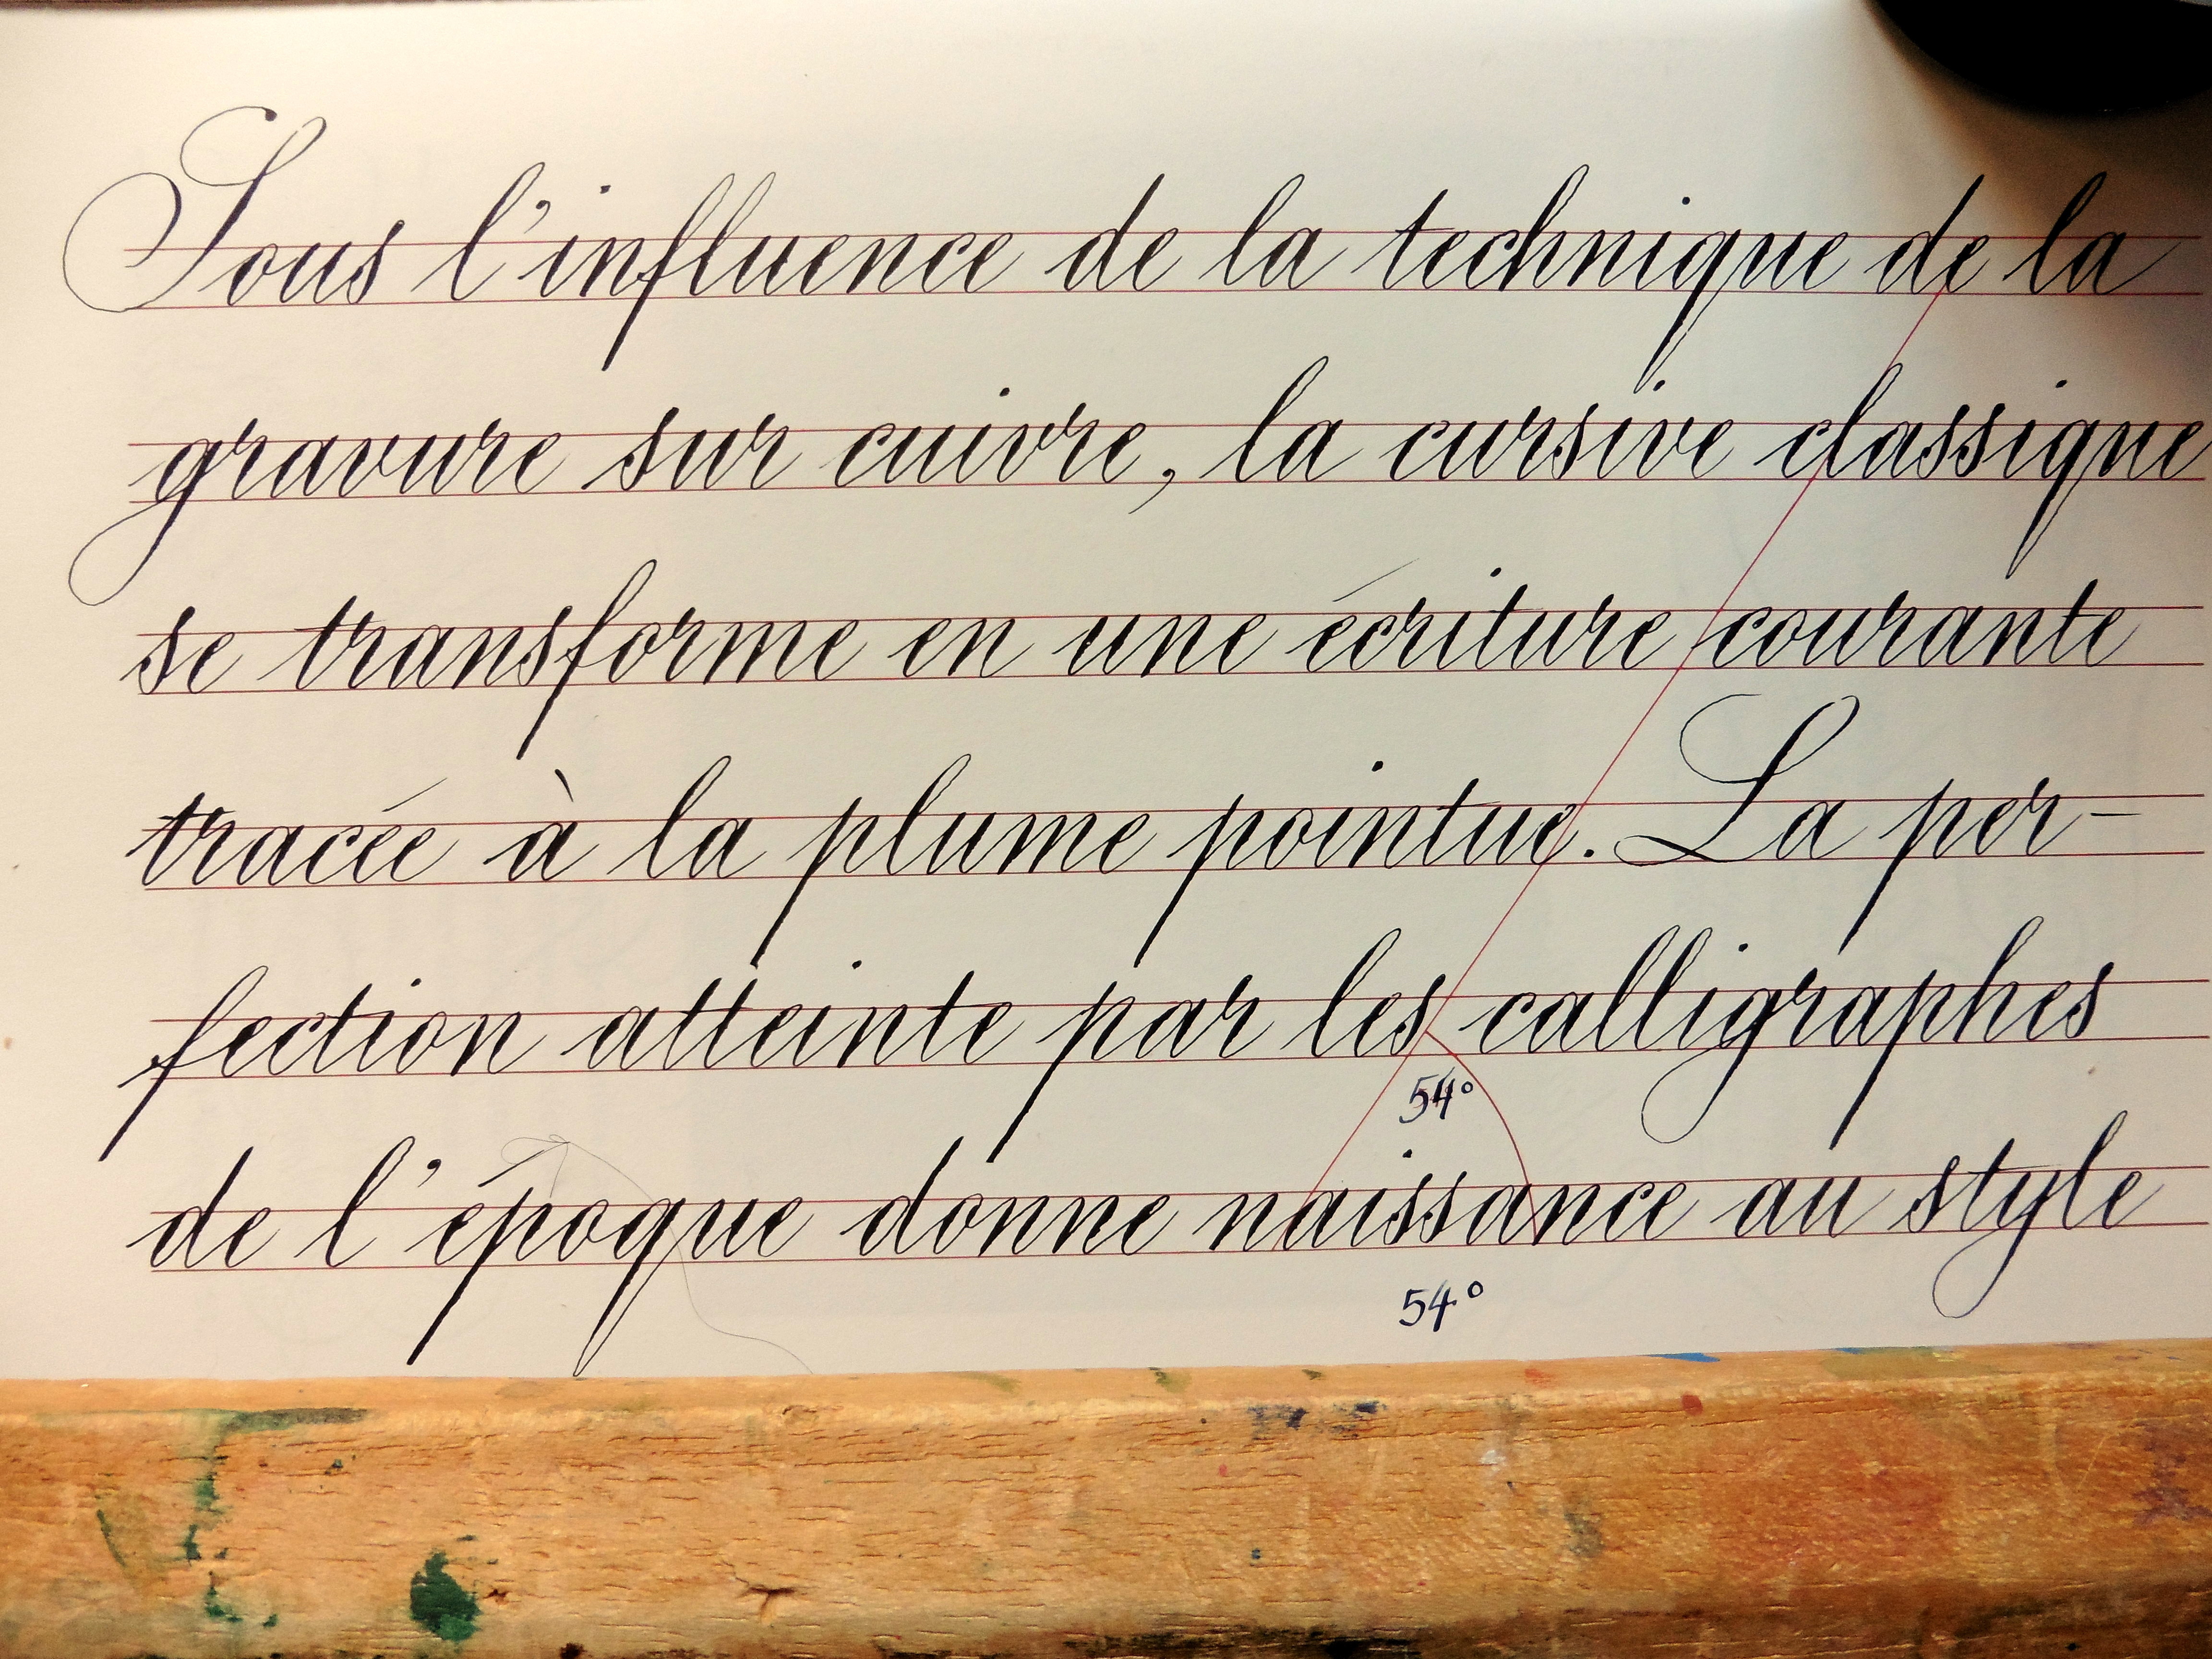 Sous l'influence de la technique de la
gravure sur cuivre, la cursive classique
se transforme en une écriture courante
tracée à la plume pointue. La per-
fection atteinte par les calligraphes
54°
de l'époque donne naissance au style
54°